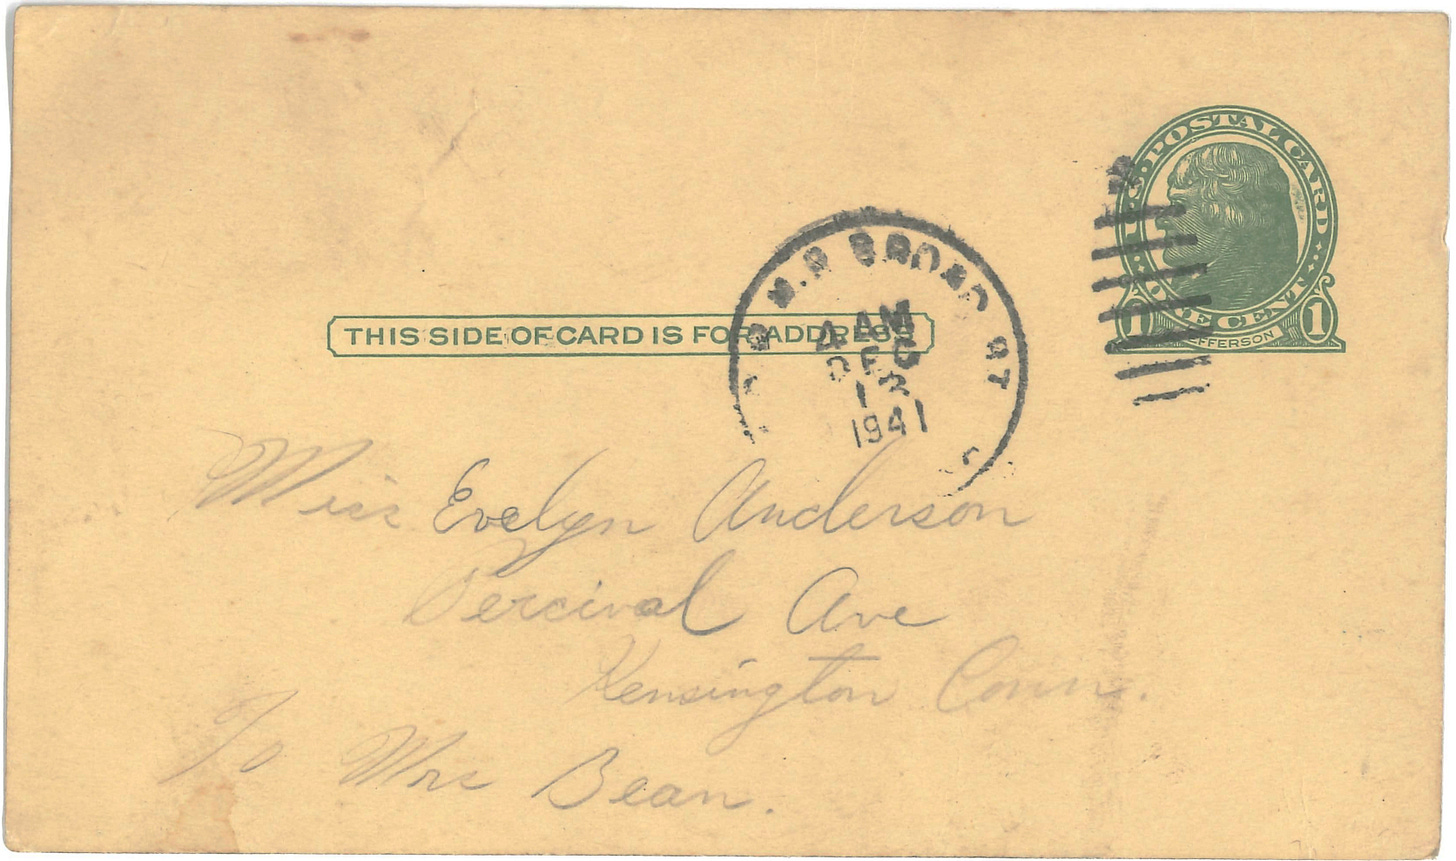 U.S. POSTAL CARD
ONE CENT
1 JEFFERSON 1
THIS SIDE OF CARD IS FOR ADDRESS
BROAD ST
4 AM
DEC
13
1941
Miss Evelyn Anderson
Percival Ave
Kensington Conn.
℅ Mrs Bean.